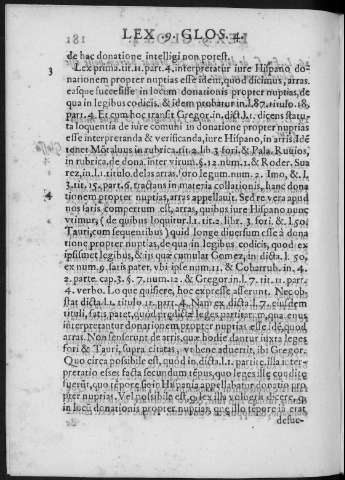 181 LEX .9. GLOS .4.
de hac donatione intelligi non potest.
3 Lex prima. tit. 11. part. 4. interpretatur iure Hispano do-
nationem propter nuptias esse idem, quod dicimus, arras.
easque successisse in locum donationis propter nuptias, de
qua in legibus codicis. & idem probatur in l. 87. titulo. 18.
part. 4. Et cum hoc transit Gregor. in. dict. l. 1. dicens statu-
ta loquentia de iure comuni in donatione propter nuptias
esse interpretanda & verificanda, iure Hispano, in arris. Idē
tenet Motaluus in rubrica. tit. 2. lib. 3. fori. & Pala. Ruuios,
in rubrica. de dona. inter virum. §. 12. num. 1. & Roder. Sua
rez, in. l. 1. titulo. de las arras. foro legum. num. 2. Imo, & l.
3. tit. 15. part. 6. tractans in materia collationis, hanc dona
4 tionem propter nuptias, arras appellauit. Sed re vera apud
nos satis compertum est, arras, quibus iure Hispano nunc
vtimur (de quibus loquitur. l. 1. tit. 2. libr. 3. fori. & l. 50.
Tauri, cum sequentibus) quid longe diuersum esse à dona
tione propter nuptias, de qua in legibus codicis, quod ex
ipsismet legibus, & iis quæ cumulat Gomez, in dicta. l. 50.
ex num. 9. satis patet. vbi ipse num. 11. & Cobarrub. in. 4.
2. parte. cap. 3. §. 7. num. 12. & Gregor. in. l. 7. tit. 11. part.
4. verbo. Lo que quisiere, hoc expresse asserunt. Nec ob-
stat dicta. l. 1. titulo 11. part. 4. Nam ex dicta. l. 7. eiusdem
tituli, satis patet, quod prædictæ leges partitarum, quatenus
interpretantur donationem propter nuptias esse idē, quod
arras. Non senserunt de arris, quæ hodie dantur iuxta leges
fori & Tauri, supra citatas, vt bene aduertit, ibi Gregor.
Quo circa possibile est, quod in. dicta. l. 1. partitæ, illa inter-
pretatio esset facta secundum tēpus, quo leges illę conditę
fuerūt, quo tēpore sic in Hispania appellabatur donatio pro
pter nuptias. Vel possibile est, q lex illa voluerit dicere,
in locū donationis propter nuptias, quę illo tēpore iā erat
desue-